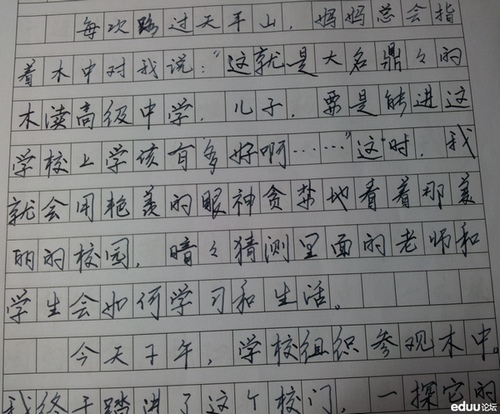 每次路过天平山，妈妈总会指
着木中对我说："这就是大名鼎々的
木渎高级中学，儿子，要是能进这
学校上学该有多好啊……"这时，我
就会用艳羡的眼神贪婪地看着那美
丽的校园，暗々猜测里面的老师和
学生会如何学习和生活。
今天下午，学校组织参观木中。
我终于踏进了这个校门，一探它的
eduu论坛